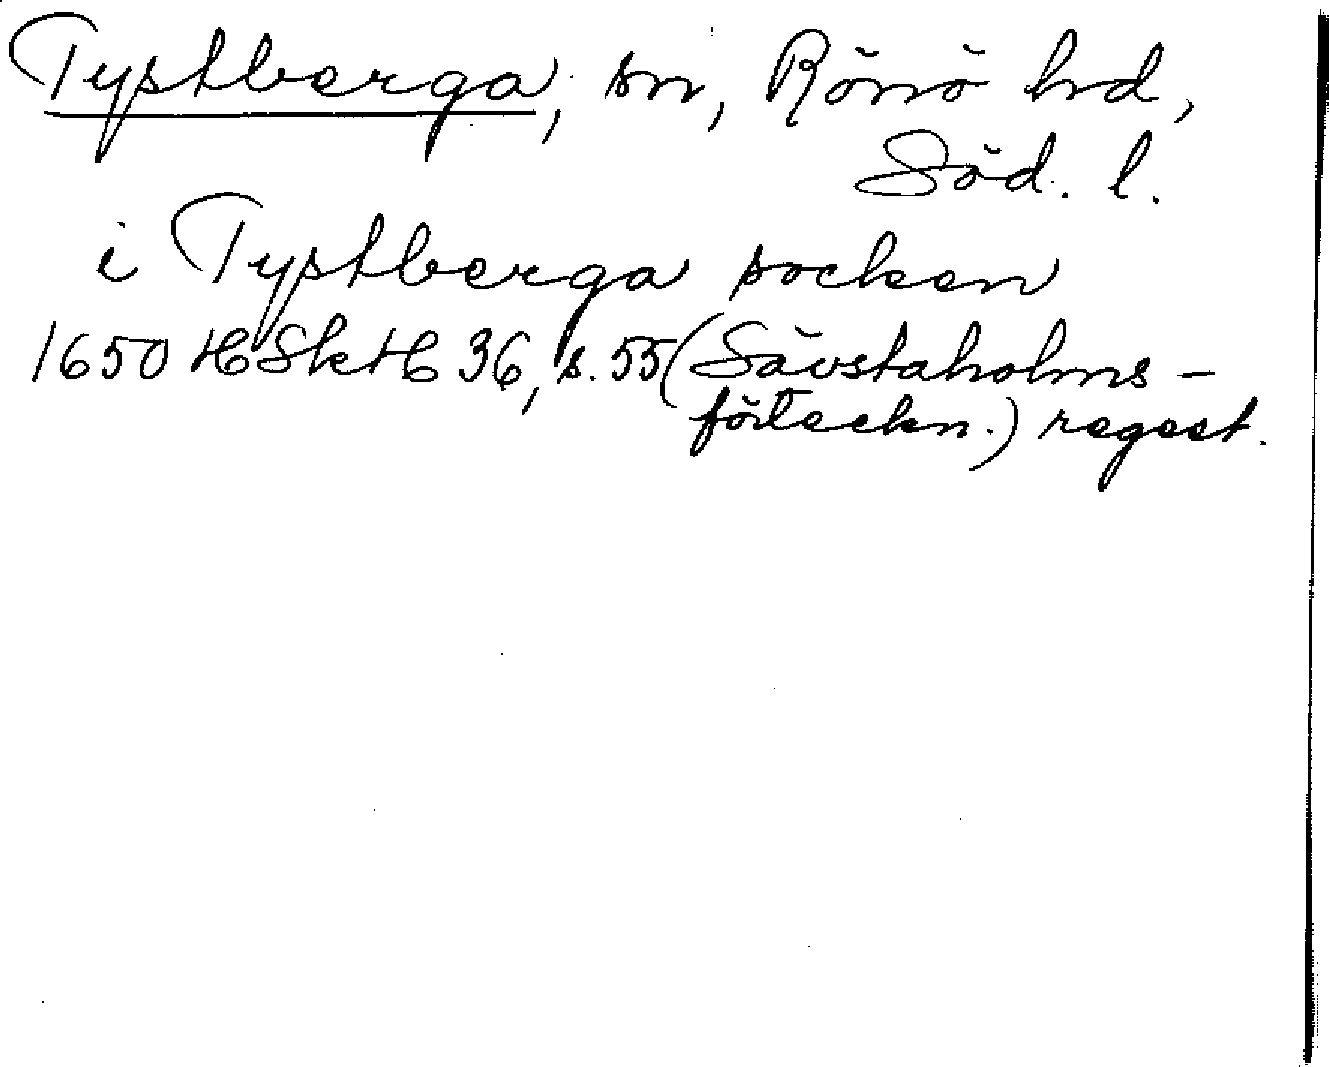 Tystberga, sn, Rönö hd,
Söd. l.
i Tystberga socken
1650 HSkH 36, s. 55 (Sävstaholms-
förteckn.) regest.